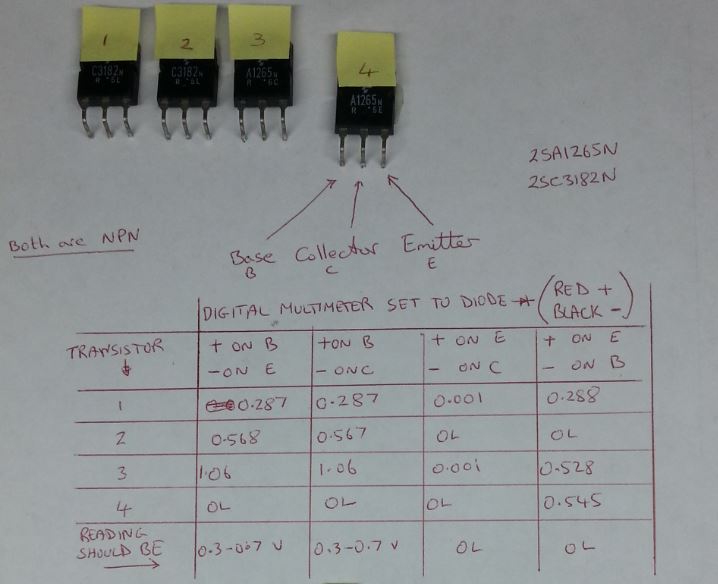 1
2
3
4
C3182N
R 6L
C3182N
R 6L
A1265N
R 6C
A1265N
R 6E
2SA1265N
2SC3182N
Both are NPN
Base Collector Emitter
B C E
DIGITAL MULTIMETER SET TO DIODE (RED + BLACK -)
TRANSISTOR
+ ON B +ON B + ON E + ON E
- ON E - ON C - ON C - ON B
1 0.287 0.287 0.001 0.288
2 0.568 0.567 OL OL
3 1.06 1.06 0.001 0.528
4 OL OL OL 0.545
READING
SHOULD BE 0.3-0.7 V 0.3-0.7 V OL OL